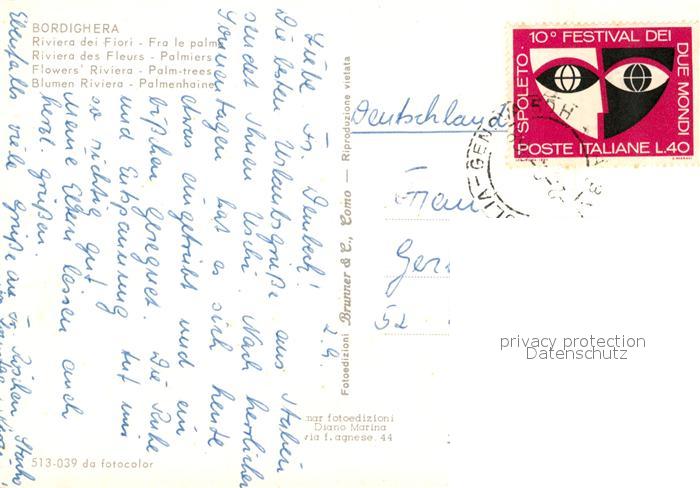 BORDIGHERA
Riviera dei Fiori - Fra le palme
Riviera des Fleurs - Palmiers
Flowers' Riviera - Palm-trees
Blumen Riviera - Palmenhaine
2.9.
Liebe Fr.
Die besten Urlaubsgrüße aus Italien
sendet Ihnen Uschi. Nach herrlichen
Sonnentagen hat es sich heute
etwas eingetrübt und ein
bißchen geregnet. Die Ruhe
und Entspannung tut mir
so richtig gut.
Meine Eltern lassen auch
herzl. grüßen.
Ebenfalls viele Grüße an Fr.
513-039 da fotocolor
Fotoedizioni Brunner & C., Como — Riproduzione vietata
mar fotoedizioni
Diano Marina
via f. agnese. 44
SPOLETO · 10° FESTIVAL DEI DUE MONDI
POSTE ITALIANE L.40
Deutschland
Frau
Ger
52
privacy protection
Datenschutz